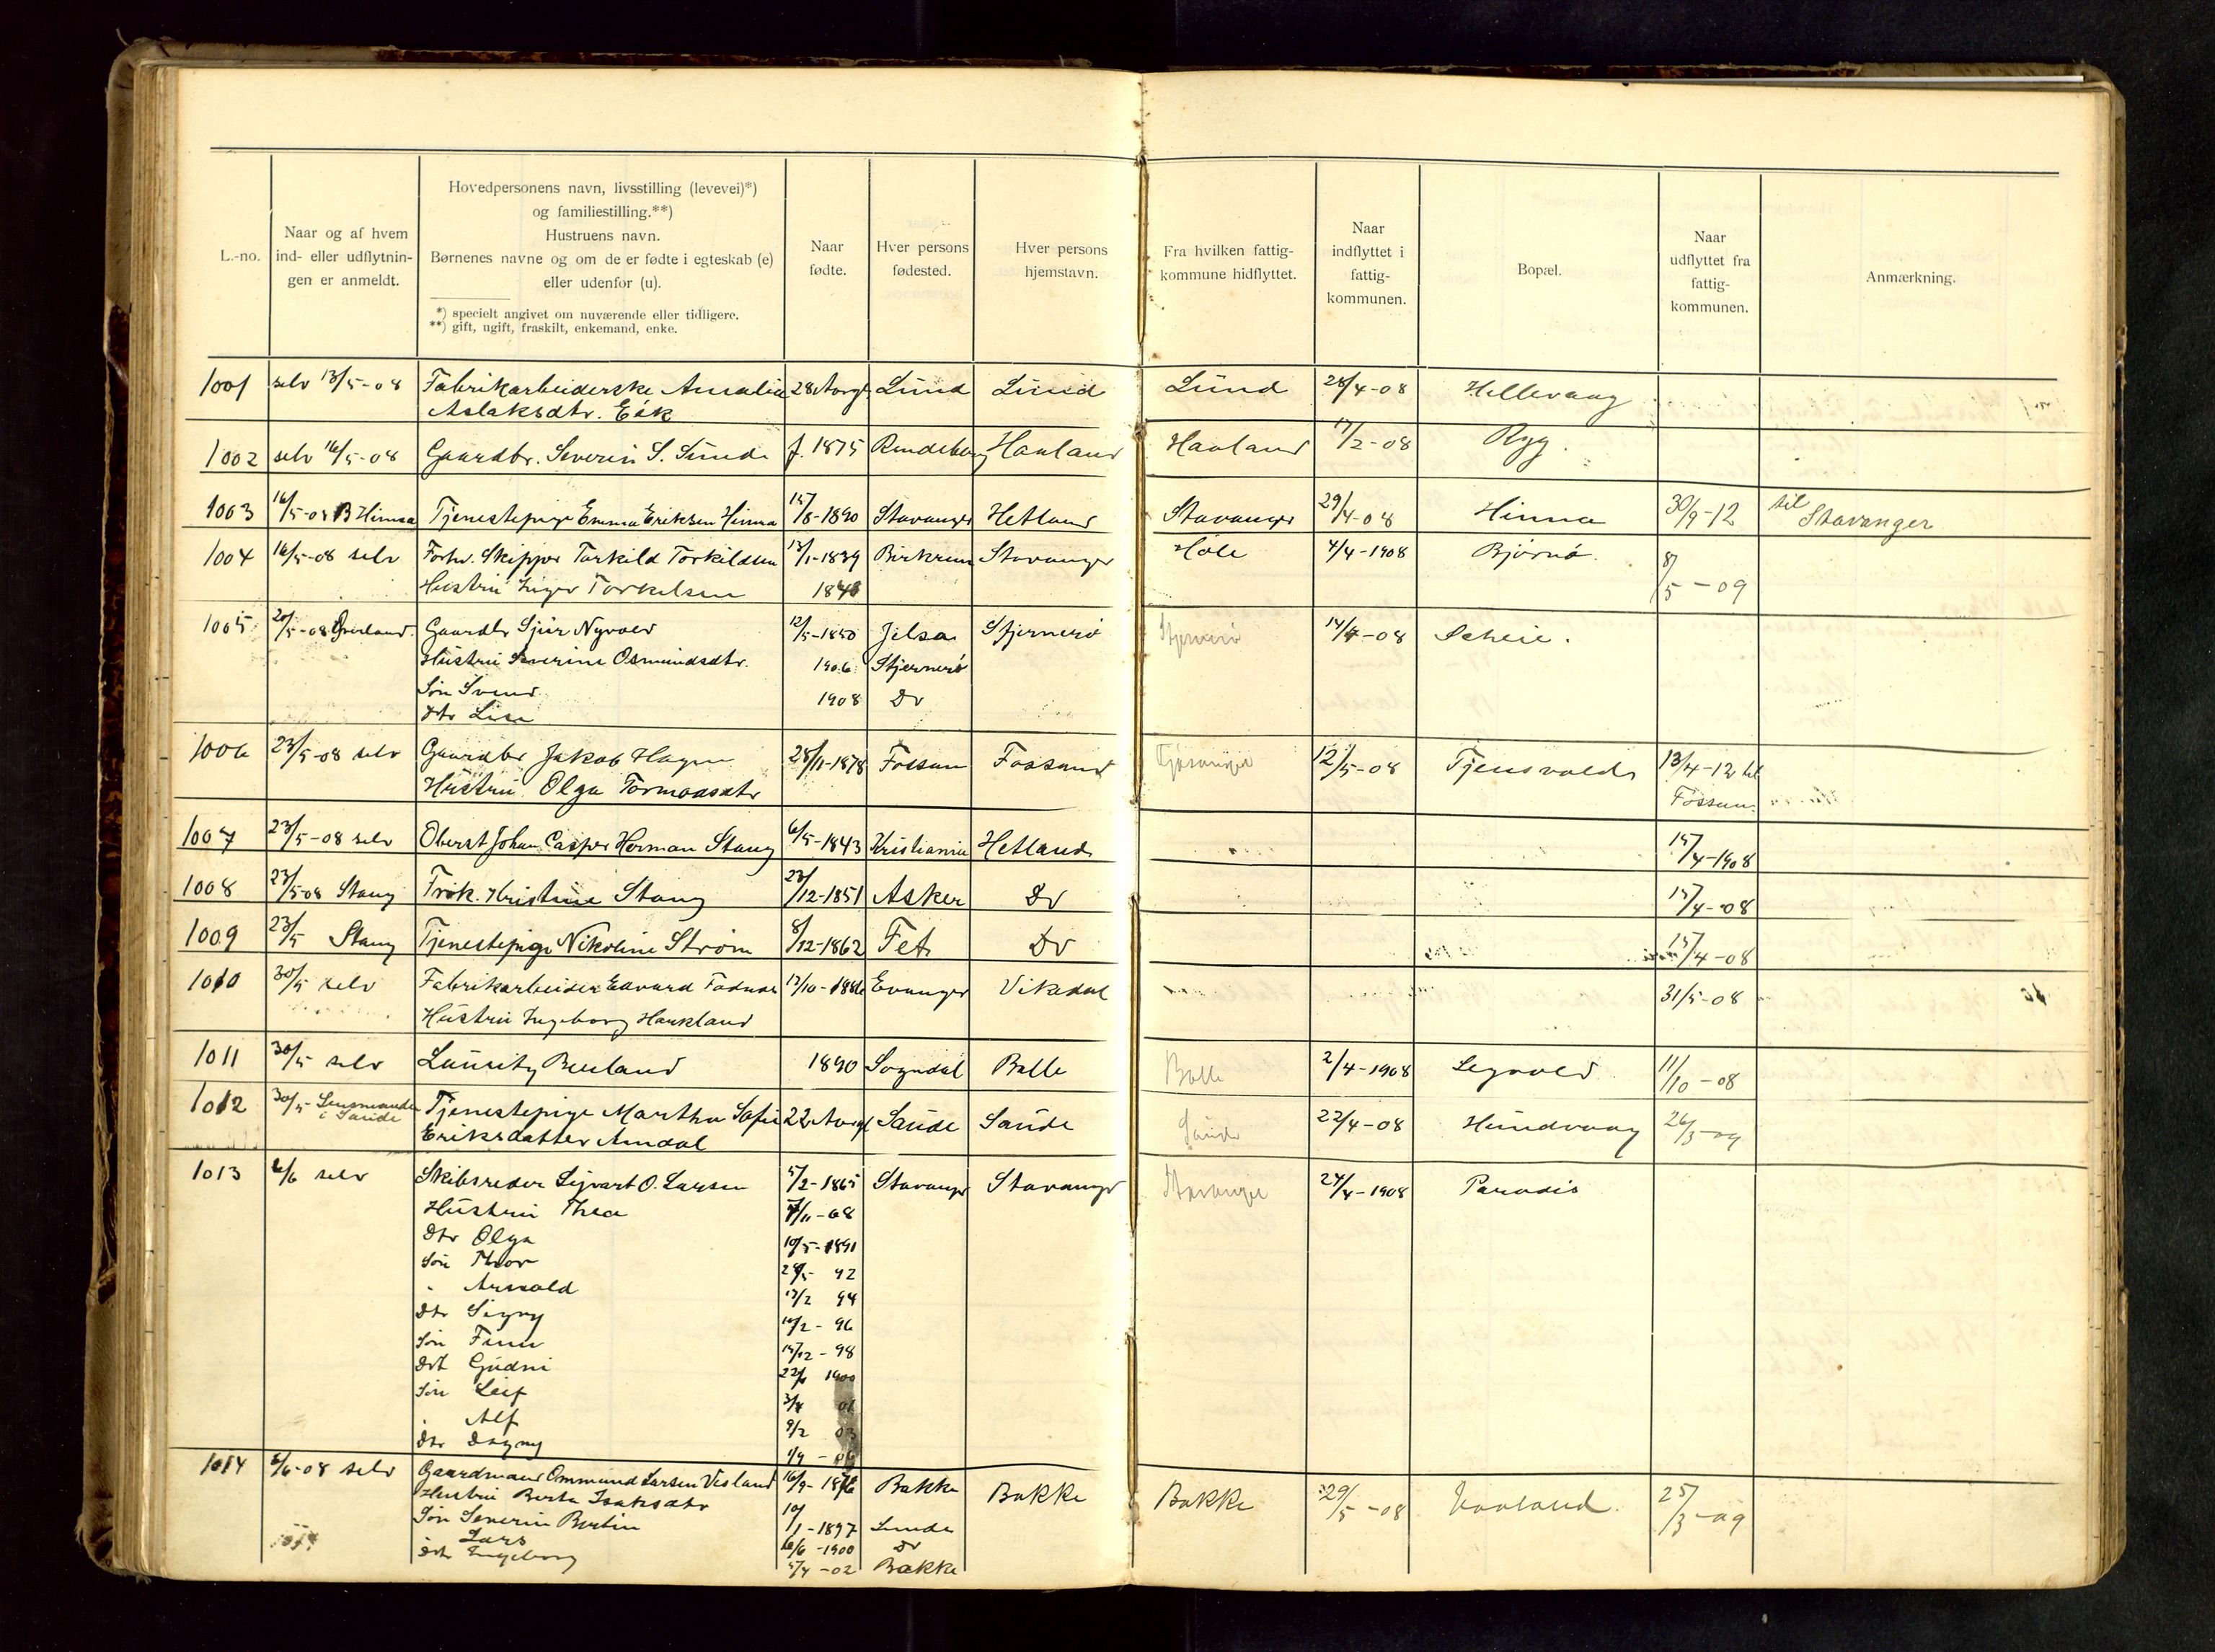 L.-no.
Naar og af hvem
ind- eller udflytnin-
gen er anmeldt.
Hovedpersonens navn, livsstilling (levevei)*)
og familiestilling.**)
Hustruens navn.
Børnenes navne og om de er fødte i egteskab (e)
eller udenfor (u).
*) specielt angivet om nuværende eller tidligere.
**) gift, ugift, fraskilt, enkemand, enke.
Naar
fødte.
Hver persons
fødested.
Hver persons
hjemstavn.
Fra hvilken fattig-
kommune hidflyttet.
Naar
indflyttet i
fattig-
kommunen.
Bopæl.
Naar
udflyttet fra
fattig-
kommunen.
Anmærkning.
1001 selv 13/5-08 Fabrikarbeiderske Amalie 28 Aar gl Lund Lund Lund 28/4-08 Hillevaag
Aslaksdtr. Eik
1002 selv 16/5-08 Gaardbr. Severin S. Sunde f. 1875 Haaland Haaland 17/2-08 Ryg.
1003 16/5-08 B Hinna Tjenestepige Emma Eriksen Hinna 15/8-1890 Stavanger Hetland Stavanger 29/4-08 Hinna 30/9-12 til Stavanger
1004 16/5-08 selv Forhv. Skipper Torkild Torkildsen 13/1-1839 Birkrem Stavanger Høle 4/4-1908 Bjørnø. 8/5-09
Hustru Inger Torkelsen 1841
1005 20/5-08 Gaardbr Sjur Nyvold 12/5-1850 Jelsa Stjernerö Stjernerö 14/4-08 Scheie.
Hustru Severine Osmundsdtr. 1906 Stjernerö
Søn Svend 1908 Do
Dtr Lise
1006 23/5-08 selv Gaardbr Jakob Hagen 28/11-1878 Fossan Fossand 12/5-08 Tjensvold 13/4-12 til
Hustru Olga Tormodsdtr Fossan.
1007 23/5-08 selv Oberst Johan Casper Herman Stang 6/5-1843 Kristiania Hetland 15/4-1908
1008 23/5-08 Stang Frøk. Kristine Stang 23/12-1851 Asker Do 15/4-08
1009 23/5 Stang Tjenestepige Nikoline Strøm 8/12-1862 Fet Do 15/4-08
1010 30/5 selv Fabrikarbeider Edvard Fadnes 13/10-1886 Evanger Vikedal 31/5-08
Hustru Ingeborg Haukland
1011 30/5 selv Lauritz Berland 1890 Sogndal Balle Balle 2/4-1908 11/10-08
1012 30/5 Lensmanden i Saude Tjenestepige Martha Sofie 22 Aar gl Saude Saude Saude 22/4-08 Hundvaag 26/3-09
Eriksdatter Amdal
1013 6/6 selv Skibsreder Sigvart O. Larsen 5/2-1865 Stavanger Stavanger Stavanger 24/4-1908 Paradis
Hustru Thea 7/11-68
Dtr Olga 10/5-1891
Søn Thor 29/5- 92
" Arnold 13/2 94
Dtr Signy 10/2-96
Søn Finn 15/12-98
Dtr Gudni 22/6 1900
Søn Leif 3/4 01
" Alf 9/2 03
Dtr Dagny 1/9-06
1014 6/6-08 selv Gaardmand Ommund Larsen Vesland 16/9-1876 Bakke Bakke Bakke 29/5-08 Vaaland. 25/3-09
Hustru Berta Isaksdtr
Søn Severin Bertin 10/1-1897 Lunde
" Lars 6/6-1900 Do
Dtr Ingeborg 5/4-02 Bakke